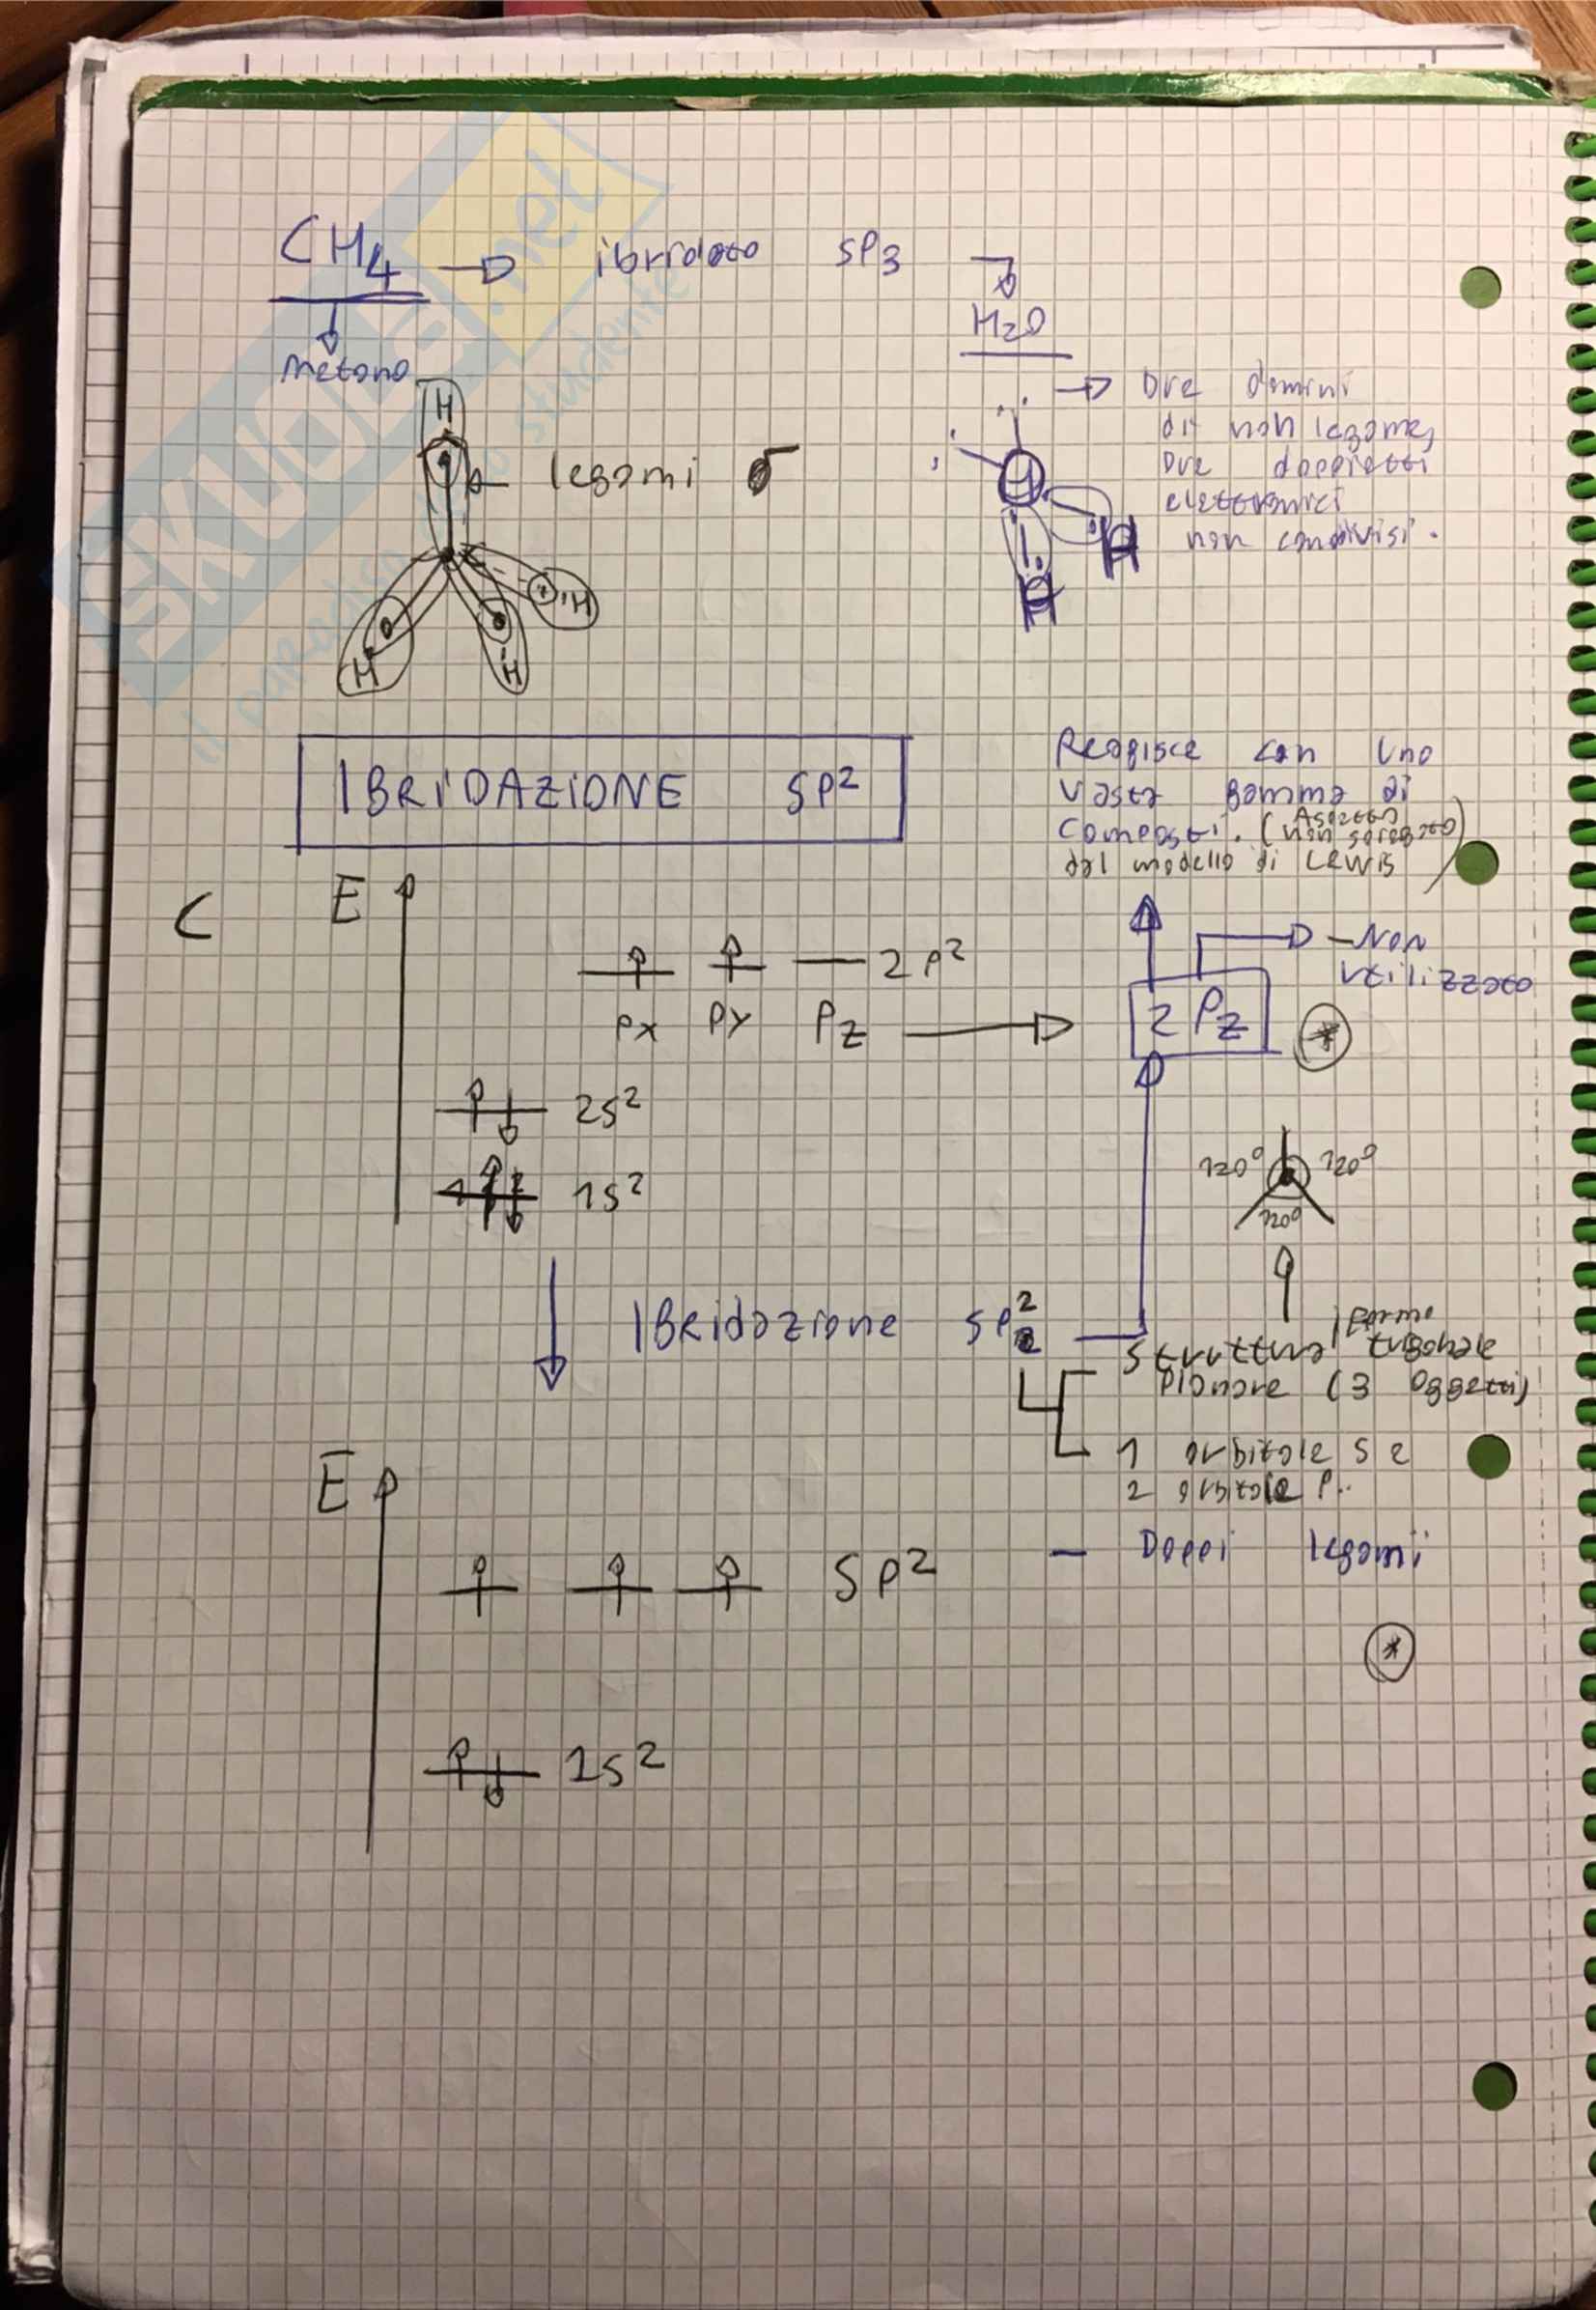 CH4 → ibridato SP3
H2O
Metano
→ Due domini
di non legame,
Due doppietti
elettronici
non condivisi.
H
legami σ
H
H
H
H
H
IBRIDAZIONE SP²
Reagisce con una
vasta gamma di
composti. (Aspetto
non spiegato)
dal modello di Lewis
C
E
2p²
px py pz
2s²
1s²
2 Pz
- Non
utilizzato
*
120° 120°
120°
IBRidazione sp²
Struttura / Forma
trigonale
Planare (3 oggetti)
1 orbitale s e
2 orbitale p..
- Doppi legami
*
E
sp²
1s²
SKUOLA.net
il paradiso
studente